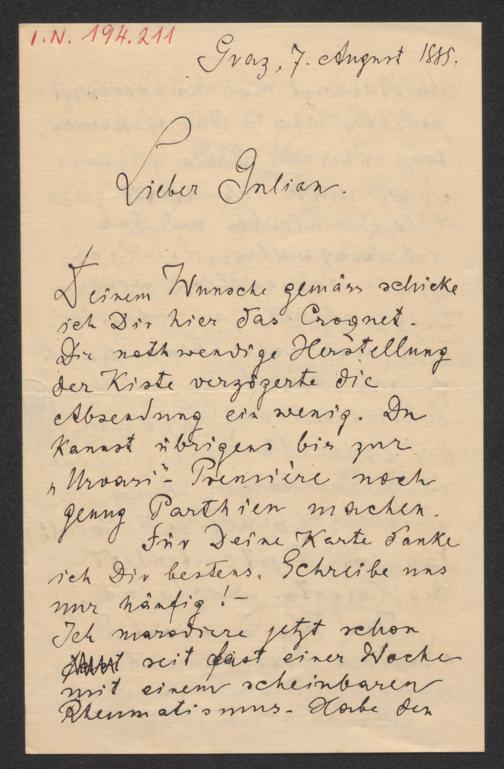 I.N. 194.211
Graz, 7. August 1885.
Lieber Julian.
Deinem Wunsche gemäss schicke
ich Dir hier das Croquet.
Die nothwendige Herstellung
der Kiste verzögerte die
Absendung ein wenig. Du
kannst übrigens bis zur
„Urvasi"- Première noch
genug Parthien machen.
Für Deine Karte danke
ich Dir bestens. Schreibe uns
nur häufig! –
Ich marodiere jetzt schon
seit fast einer Woche
mit einem scheinbaren
Rheumatismus. Habe den